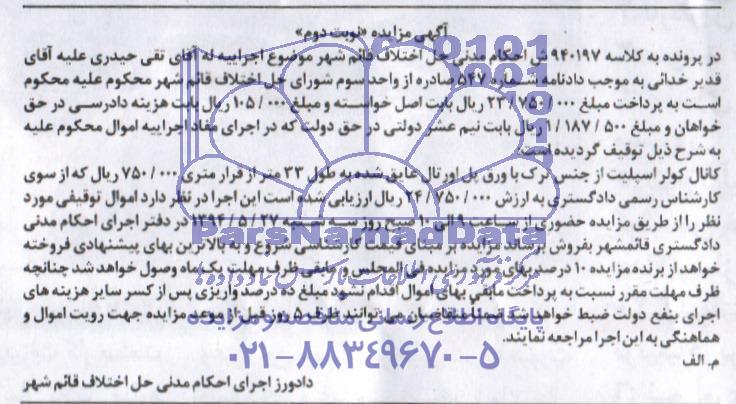 آگهی مزایده «نوبت دوم»
در پرونده به کلاسه ۹۴۰۱۹۷ ش احکام مدنی حل اختلاف قائم شهر موضوع اجراییه له آقای تقی حیدری علیه آقای
قدیر خدائی به موجب دادنامه شماره ۵۴۷ صادره از واحد سوم شورای حل اختلاف قائم شهر محکوم علیه محکوم
است به پرداخت مبلغ ۲۳/۷۵۰/۰۰۰ ریال بابت اصل خواسته و مبلغ ۱۰۵/۰۰۰ ریال بابت هزینه دادرسی در حق
خواهان و مبلغ ۱/۱۸۷/۵۰۰ ریال بابت نیم عشر دولتی در حق دولت که در اجرای مفاد اجراییه اموال محکوم علیه
به شرح ذیل توقیف گردیده است.
کانال کولر اسپلیت از جنس ترک با ورق پل اورتال عایق شده به طول ۳۳ متر از قرار متری ۷۵۰/۰۰۰ ریال که از سوی
کارشناس رسمی دادگستری به ارزش ۲۴/۷۵۰/۰۰۰ ریال ارزیابی شده است این اجرا در نظر دارد اموال توقیفی مورد
نظر را از طریق مزایده حضوری از ساعت ۹ الی ۱۰ صبح روز سه شنبه ۱۳۹۴/۵/۲۷ در دفتر اجرای احکام مدنی
دادگستری قائمشهر بفروش برساند مزایده از بهای قیمت کارشناسی شروع و به بالاترین بهای پیشنهادی فروخته
خواهد از برنده مزایده ۱۰ درصد بهای مورد مزایده فی المجلس و مابقی ظرف مهلت یک ماه وصول خواهد شد چنانچه
ظرف مهلت مقرر نسبت به پرداخت مابقی بهای اموال اقدام نشود مبلغ ده درصد واریزی پس از کسر سایر هزینه های
اجرای بنفع دولت ضبط خواهد شد ضمنا متقاضیان می توانند ظرف ۵ روز قبل از موعد مزایده جهت رویت اموال و
هماهنگی به این اجرا مراجعه نمایند.
م. الف
دادورز اجرای احکام مدنی حل اختلاف قائم شهر
ParsNamadData
پایگاه اطلاع رسانی مناقصه و مزایده
۰۲۱-۸۸۳۴۹۶۷۰-۵